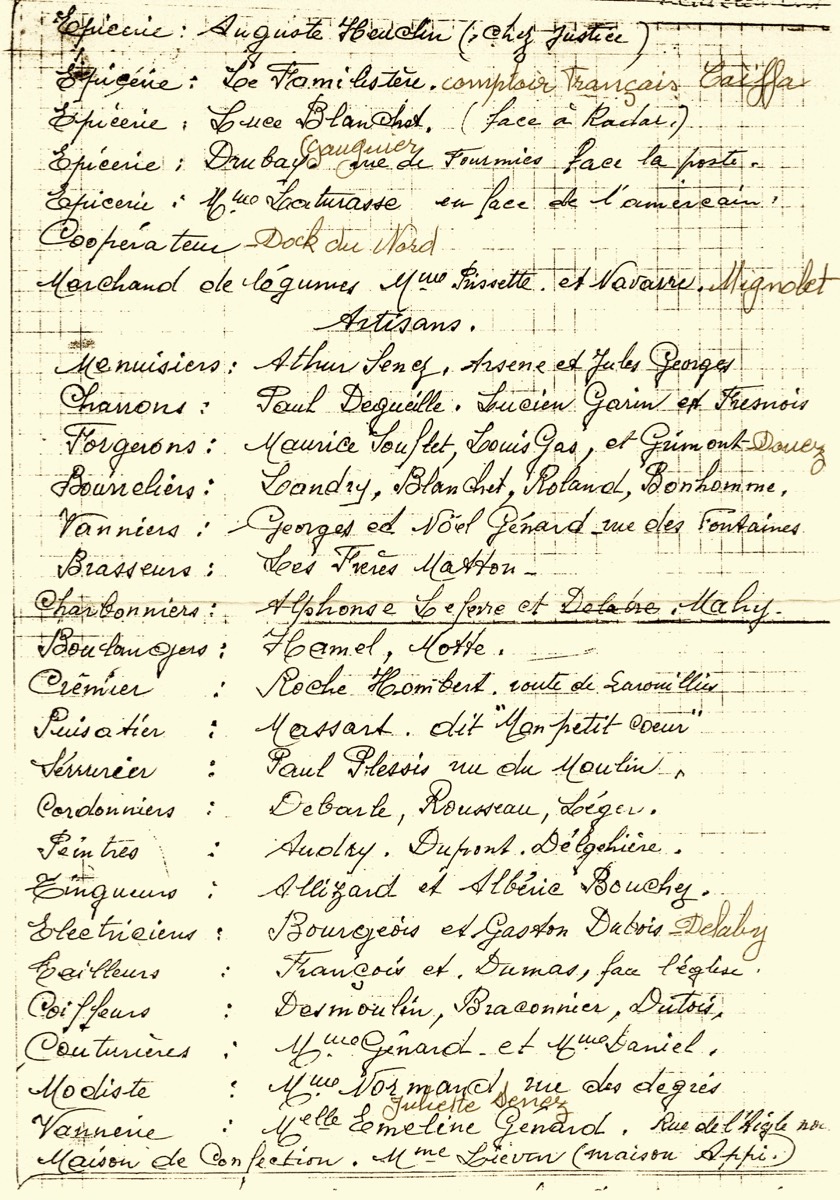 Epicerie : Auguste Heuclin (, chez Justice )
Epicérie : Le Familistère. comptoir Français Caïffa
Epicerie : Luce Blanchot. ( face à Radar.)
Gauguier
Epicerie : Drubay. rue de Fourmies face la poste.
Epicerie : Mme Laturasse en face de l'américain.
Coopérateur Dock du Nord
Marchand de légumes Mme Prissette. et Navarre. Mignolet
Artisans.
Menuisiers : Athur Senez, Arsene et Jules Georges
Charrons : Paul Degueille. Lucien Garin et Fresnois
Forgerons : Maurice Souflet, Louis Gas, et Grimont-Douez
Bourreliers : Landry, Blanchet, Roland, Bonhomme.
Vanniers : Georges et Nöel Génard rue des Fontaines
Brasseurs : Les Frères Matton
Charbonniers : Alphonse Lefevre et Delabre. Mahy.
Boulangers : Hamel, Motte.
Crémier : Roche Hombert. route de Larouillies
Puisatier : Massart. dit "Mon petit coeur"
Sérrurier : Paul Plessis rue du Moulin.
Cordonniers : Debarle, Rousseau, Léger.
Peintres : Audry. Dupont. Délgehière.
Zingueurs : Allizard et Albéric Bouchez.
Electriciens : Bourgeois et Gaston Dubois-Delaby
Tailleurs : François et. Dumas, face l'église.
Coiffeurs : Desmoulin, Braconnier, Dutois,
Couturières : Mme Génard et Mme Daniel.
Modiste : Mme Normand, rue des degrés
Juliette Denez
Vannerie : Melle Emeline Génard. Rue de l'Aigle noi
Maison de Confection. Mme Liévan (maison Appi.)